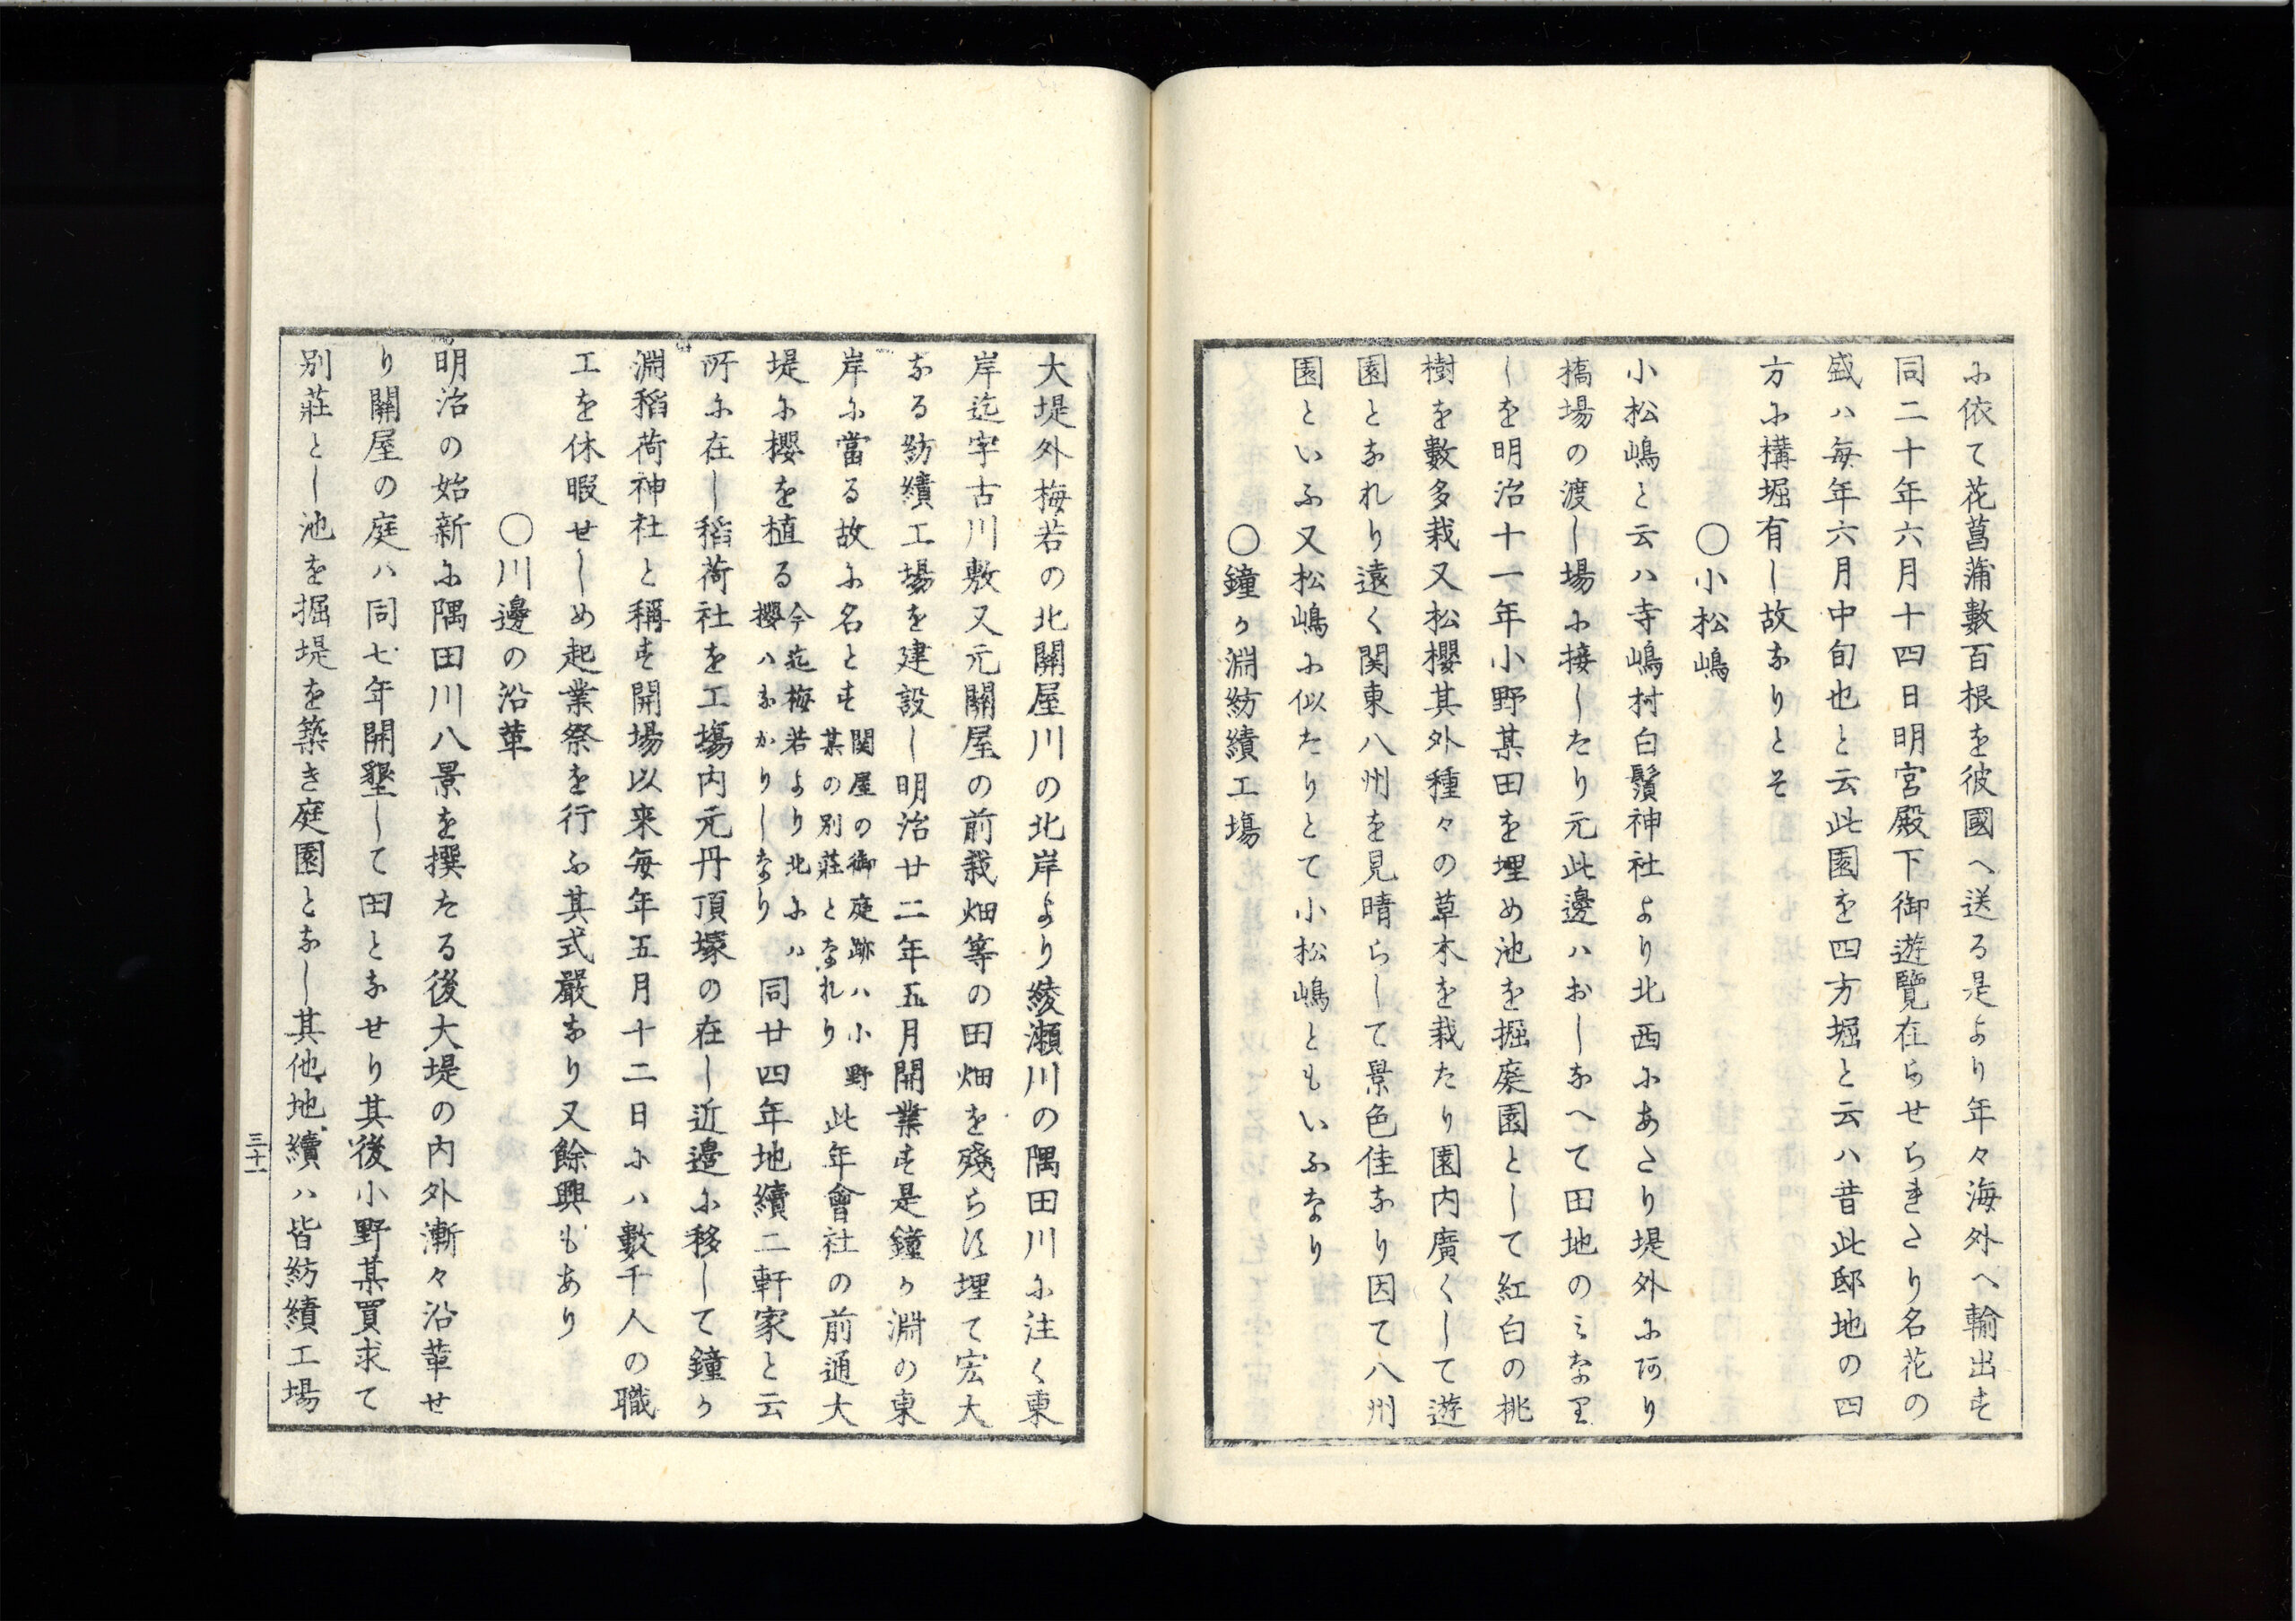 に依て花菖蒲數百根を彼國へ送る是より年々海外へ輸出す
同二十年六月十四日明宮殿下御遊覽在らせられたり名花の
盛ハ毎年六月中旬也と云此園を四方堀と云ハ昔此邸地の四
方に構堀有し故なりとそ
〇小松嶋
小松嶋と云ハ寺嶋村白鬚神社より北西にあたり堤外に阿り
橋場の渡し場に接したり元此邊ハおしなへて田地のミなり
しを明治十一年小野某田を埋め池を掘庭園として紅白の桃
樹を數多栽又松櫻其外種々の草木を栽たり園内廣くして遊
園となれり遠く関東八州を見晴らして景色佳なり因て八州
園といふ又松嶋に似たりとて小松嶋ともいふなり
〇鐘ヶ淵紡績工塲
大堤外梅若の北關屋川の北岸より綾瀬川の隅田川に注く東
岸迄字古川敷又元關屋の前栽畑等の田畑を殘らす埋て宏大
なる紡績工場を建設し明治廿二年五月開業す是鐘ヶ淵の東
岸に當る故に名とす関屋の御庭跡ハ小野某の別莊となれり此年會社の前通大
堤に櫻を植る今迄梅若より北にハ櫻ハなかりしなり同廿四年地續二軒家と云
所に在し稻荷社を工塲内元丹頂塚の在し近邉に移して鐘ヶ
淵稻荷神社と稱す開場以来毎年五月十二日にハ數千人の職
工を休暇せしめ起業祭を行ふ其式嚴なり又餘興もあり
〇川邊の沿革
明治の始新に隅田川八景を撰たる後大堤の内外漸々沿革せ
り關屋の庭ハ同七年開墾して田となせり其後小野某買求て
別莊とし池を掘堤を築き庭園となし其他地續ハ皆紡績工場
三十一